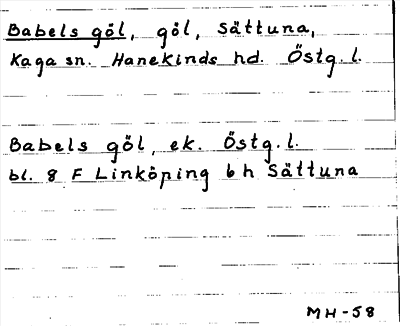 Babels göl, göl, Sättuna,
Kaga sn. Hanekinds hd. Östg.l.
Babels göl, ek. Östg.l.
bl. 8 F Linköping b h Sättuna
MH-58